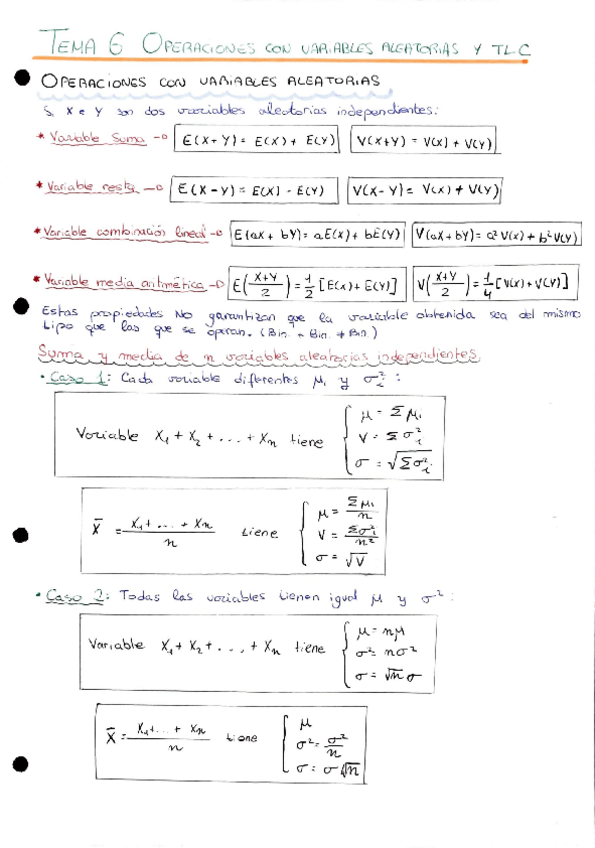 TEMA 6 OPERACIONES CON VARIABLES ALEATORIAS Y TLC
OPERACIONES CON VARIABLES ALEATORIAS
Si X e Y son dos variables aleatorias independientes:
* Variable suma → E(X+Y) = E(X) + E(Y) V(X+Y) = V(X) + V(Y)
* Variable resta → E(X-Y) = E(X) - E(Y) V(X-Y) = V(X) + V(Y)
* Variable combinación lineal → E(aX + bY) = aE(X) + bE(Y) V(aX + bY) = a² V(X) + b² V(Y)
* Variable media aritmética → E((X+Y)/2) = 1/2 [E(X) + E(Y)] V((X+Y)/2) = 1/4 [V(X) + V(Y)]
Estas propiedades NO garantizan que la variable obtenida sea del mismo
tipo que las que se operan. (Bin. + Bin. ≠ Bin.)
Suma y media de n variables aleatorias independientes:
• Caso 1: Cada variable diferentes μi y σi²:
Variable X1 + X2 + ... + Xn tiene { μ = Σμi
V = Σσi²
σ = √Σσi²
X̄ = (X1 + ... + Xn)/n tiene { μ = Σμi/n
V = Σσi²/n²
σ = √V
• Caso 2: Todas las variables tienen igual μ y σ²:
Variable X1 + X2 + ... + Xn tiene { μ = nμ
σ² = nσ²
σ = √n σ
X̄ = (X1 + ... + Xn)/n tiene { μ
σ² = σ²/n
σ = σ √n